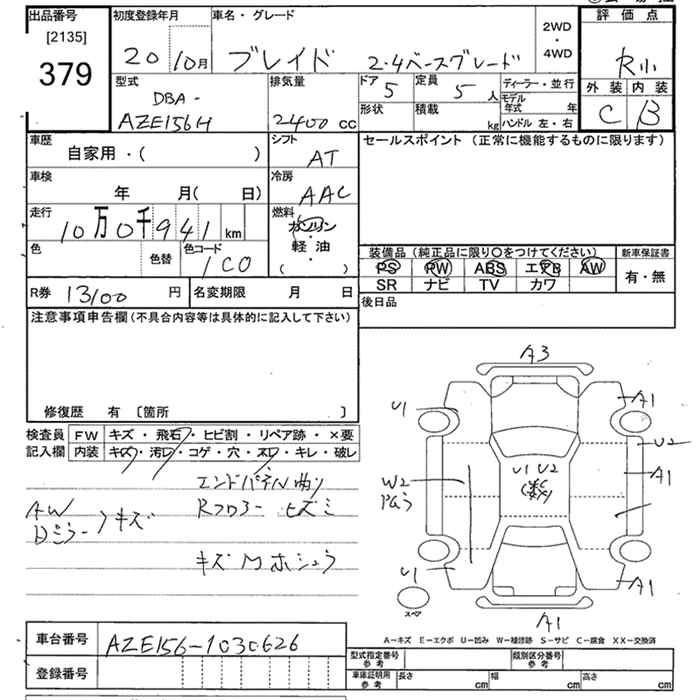 出品番号 初度登録年月 車名・グレード 2WD・4WD 評価点
[2135]
379 20 10月 ブレイド 2.4ベースグレード R小
型式 排気量 ドア 定員 ディーラー・並行 外装 内装
DBA- 5 5人 モデル年式 年 C B
AZE156H 2400cc 形状 積載 kg ハンドル 左・右
車歴 シフト セールスポイント (正常に機能するものに限ります)
自家用・( ) AT
車検 冷房
年 月( 日) AAC
走行 燃料
10万0千941km ガソリン・軽・油( )
色 色替 色コード 装備品(純正品に限り〇をつけてください) 新車保証書
1C0 PS PW ABS エアB AW 有・無
R券 13100円 名変期限 月 日 SR ナビ TV カワ
注意事項申告欄(不具合内容等は具体的に記入して下さい) 後日品
修復歴 有 〔箇所 〕
検査員 FW キズ・飛石・ヒビ割・リペア跡・×要
記入欄 内装 キズ・汚レ・コゲ・穴・スレ・キレ・破レ
エンドパネル曲り
AW Rフロアー ヒズミ
Dミラー キズ
キズM ホシュウ
A3
U1 A1
U2
U1 U2 A1
W2
U1 A1
スペア
A1
A-キズ E-エクボ U-凹み W-補修跡 S-サビ C-腐食 XX-交換済
車台番号 AZE156-1030626
登録番号
型式指定番号 参考 類別区分番号 参考
車庫証明用 参考 長さ cm 幅 cm 高さ cm